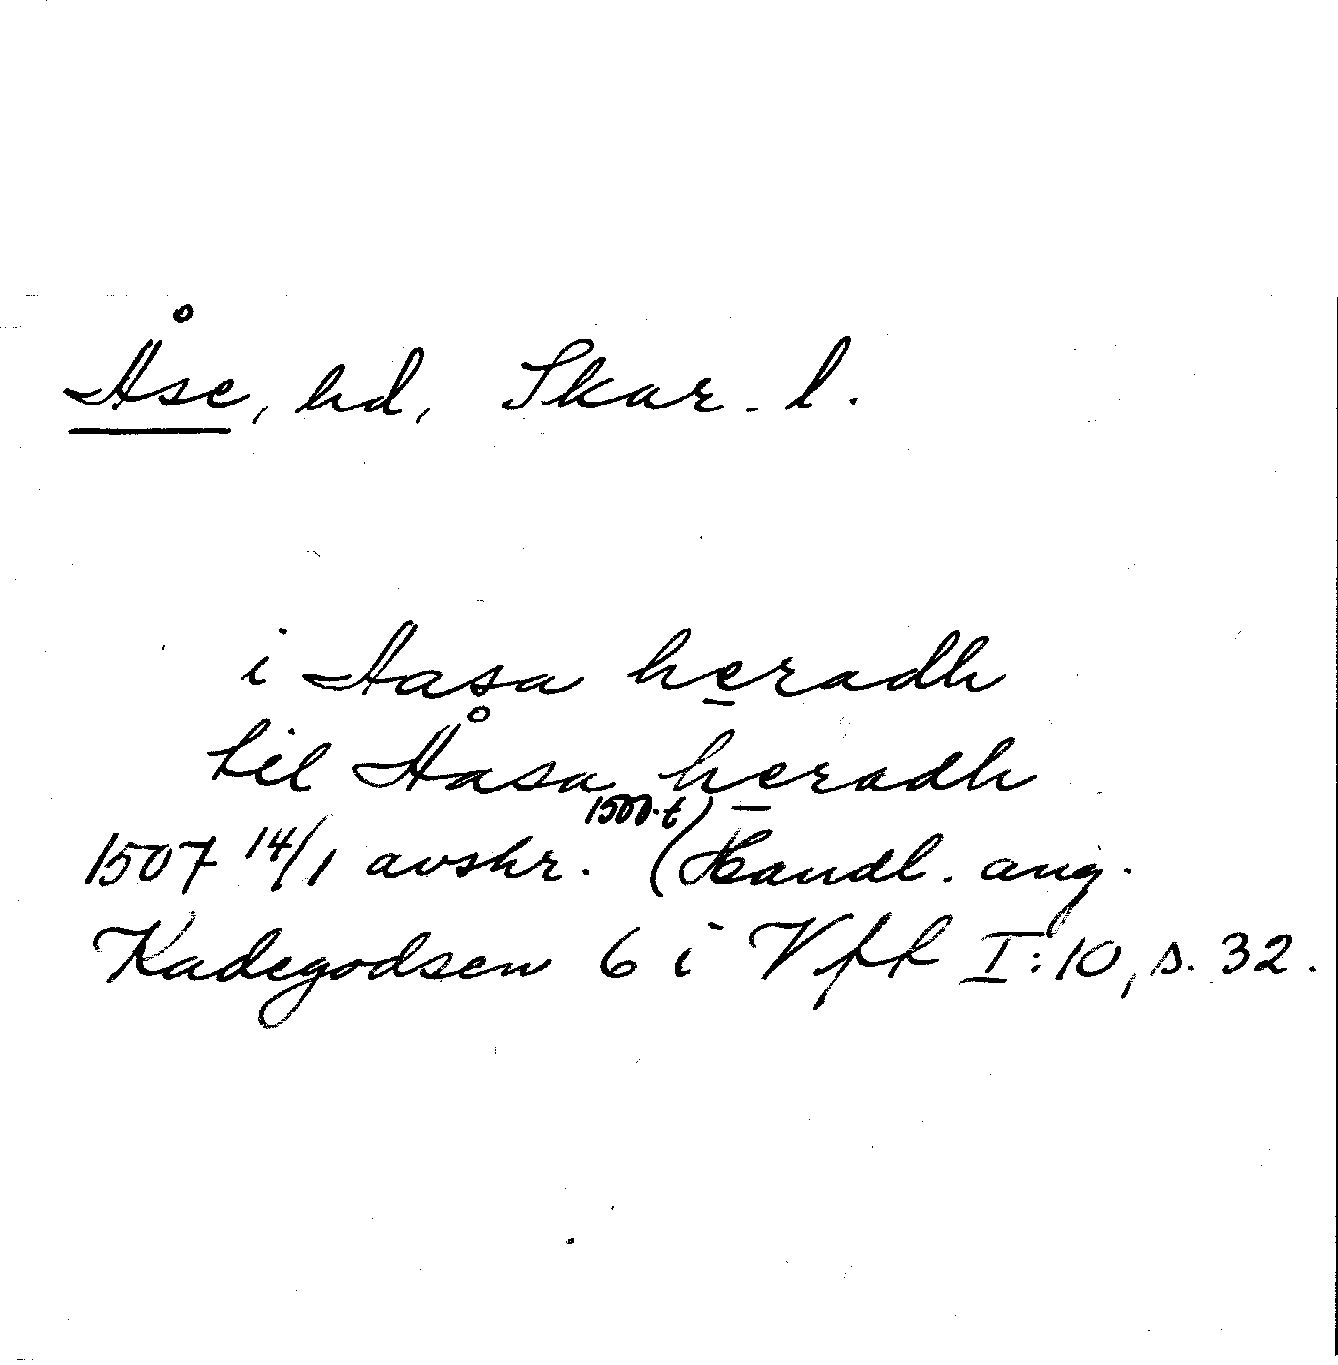 Åse, hd, Skar. l.
i Aasa heradh
til Åasa heradh
1507 14/1 avskr. 1500-t (Handl. ang.
Kadegodsen 6 i Vfk I:10, s. 32.